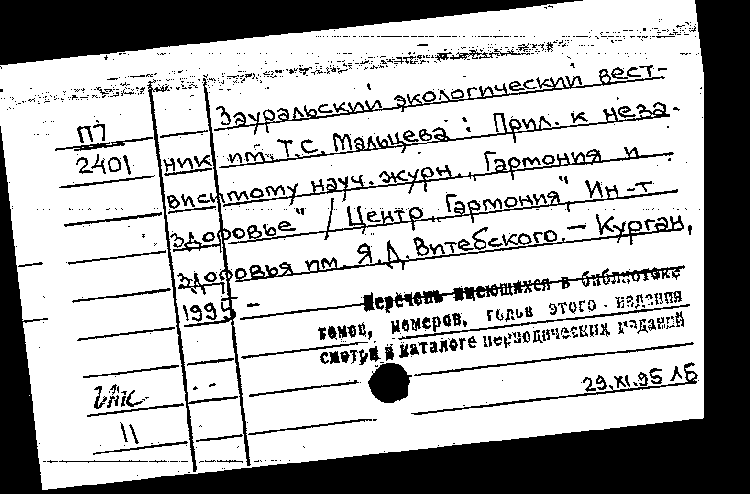 Зауральский экологический вест-
П7
2401
ник им. Т.С. Мальцева : Прил. к неза-
висимому науч. журн. „Гармония и
здоровье" / Центр „Гармония", Ин-т
здоровья им. Я.Д. Витебского. — Курган,
1995 –
Перечень имеющихся в библиотеке
томов, номеров, годов этого издания
смотри в каталоге периодических изданий
29.XI.95 ЛБ
11